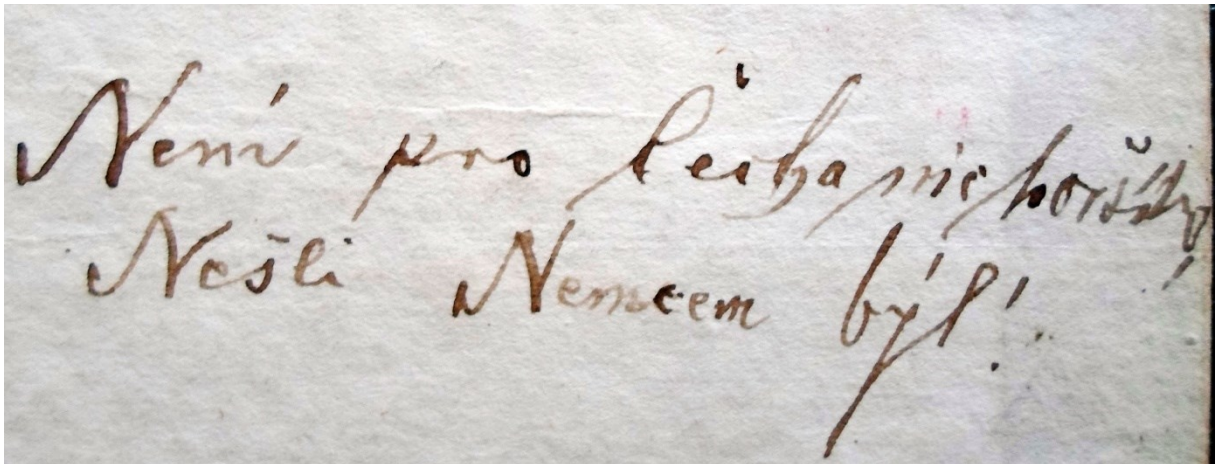 Není pro Čecha nic horšího
Nešli Nemcem býl!